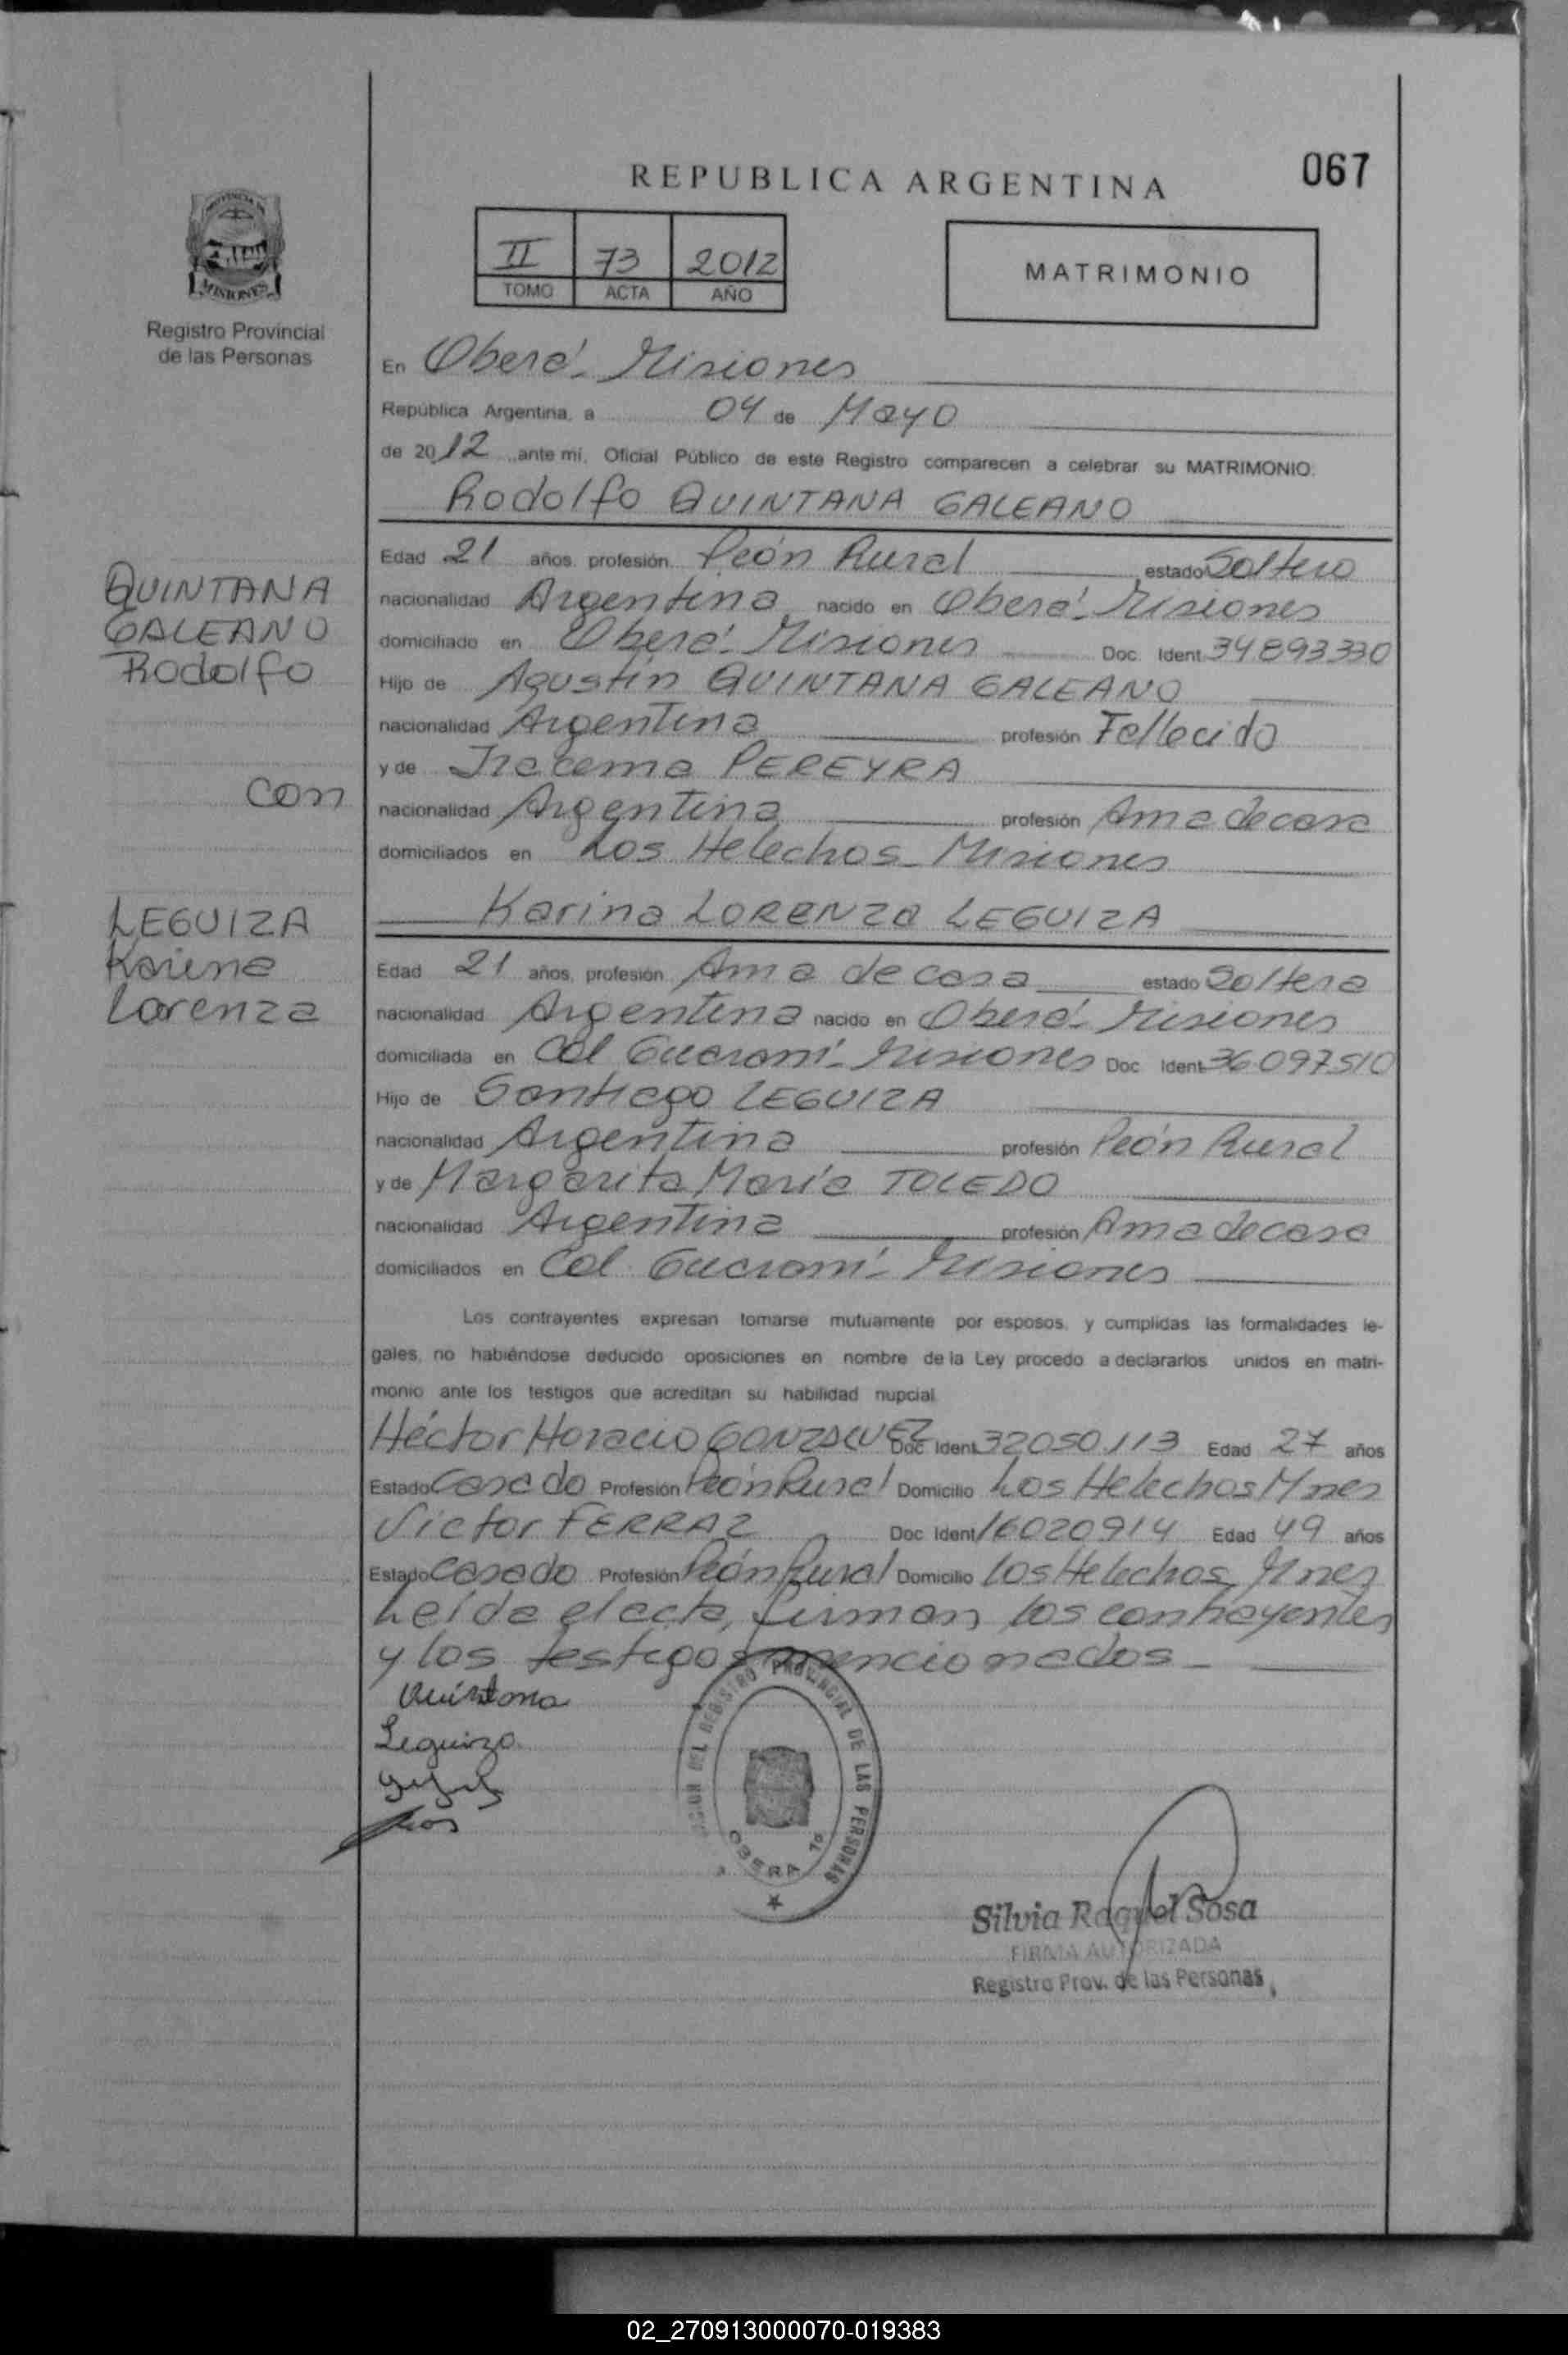 067
REPUBLICA ARGENTINA
PROVINCIA DE
MISIONES
Registro Provincial
de las Personas
II 73 2012
TOMO ACTA AÑO
MATRIMONIO
En Oberá - Misiones
República Argentina, a 04 de Mayo
de 2012 ante mí, Oficial Público de este Registro comparecen a celebrar su MATRIMONIO:
Rodolfo QUINTANA GALEANO
QUINTANA
GALEANO
Rodolfo
con
LEGUIZA
Karina
Lorenza
Edad 21 años, profesión Peón Rural estado Soltero
nacionalidad Argentina nacido en Oberá - Misiones
domiciliado en Oberá - Misiones Doc. Ident. 34893330
Hijo de Agustín QUINTANA GALEANO
nacionalidad Argentina profesión Fallecido
y de Iracema PEREYRA
nacionalidad Argentina profesión Ama de casa
domiciliados en Los Helechos - Misiones
Karina LORENZA LEGUIZA
Edad 21 años, profesión Ama de casa estado Soltera
nacionalidad Argentina nacido en Oberá - Misiones
domiciliada en Col Guaraní - Misiones Doc. Ident. 36097510
Hijo de Santiago LEGUIZA
nacionalidad Argentina profesión Peón Rural
y de Margarita María TOLEDO
nacionalidad Argentina profesión Ama de casa
domiciliados en Col. Guaraní - Misiones
Los contrayentes expresan tomarse mutuamente por esposos, y cumplidas las formalidades le-
gales, no habiéndose deducido oposiciones en nombre de la Ley procedo a declararlos unidos en matri-
monio ante los testigos que acreditan su habilidad nupcial.
Héctor Horacio Doc. Ident. 32050113 Edad 27 años
Estado Casado Profesión Peón Rural Domicilio Los Helechos Mnes
Victor FERRAZ Doc. Ident. 16020914 Edad 49 años
Estado Casado Profesión Peón Rural Domicilio Los Helechos Mnes
Leída el acta, firman los contrayentes
y los testigos mencionados -
Quintana
Leguiza
DEL REGISTRO PROVINCIAL DE LAS PERSONAS
OBERA
Silvia Raquel Sosa
FIRMA AUTORIZADA
Registro Prov. de las Personas
02_270913000070-019383